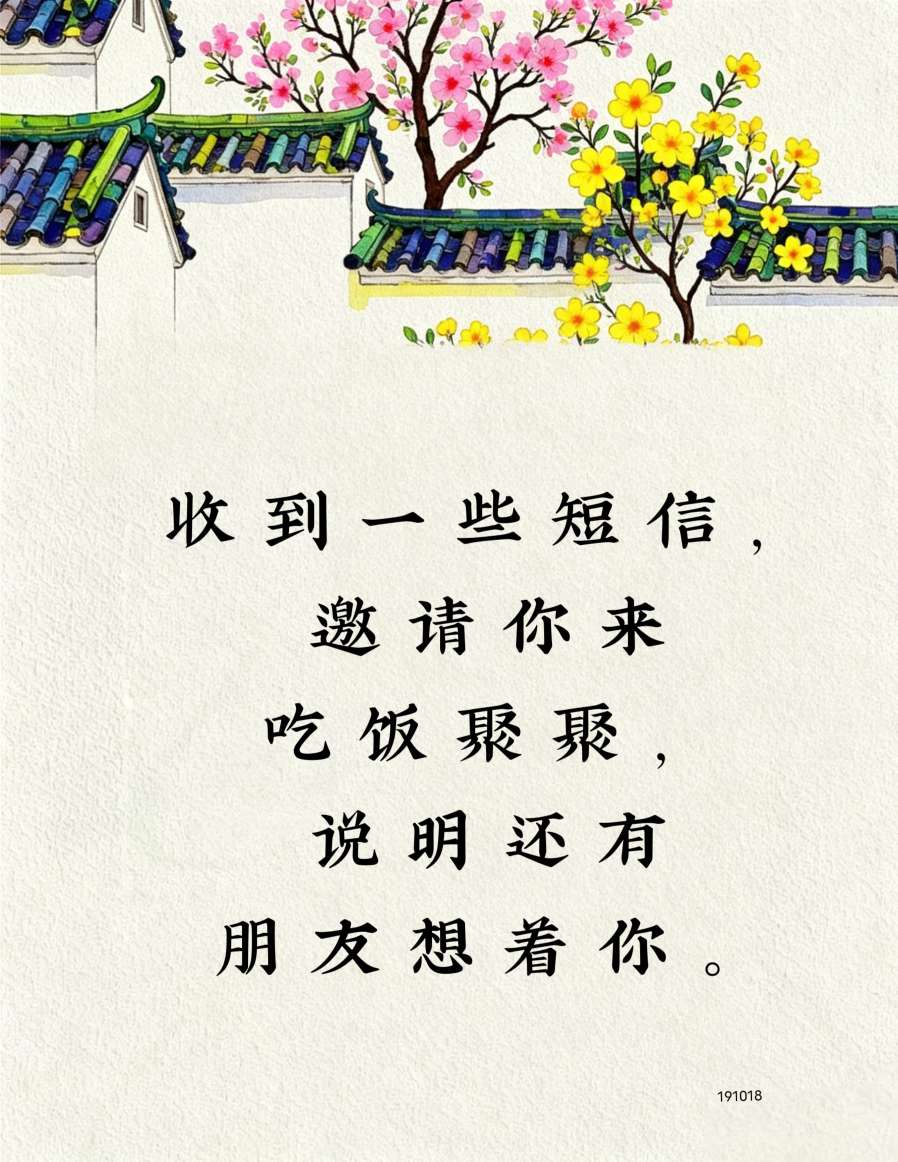 收到一些短信，
邀请你来
吃饭聚聚，
说明还有
朋友想着你。
191018